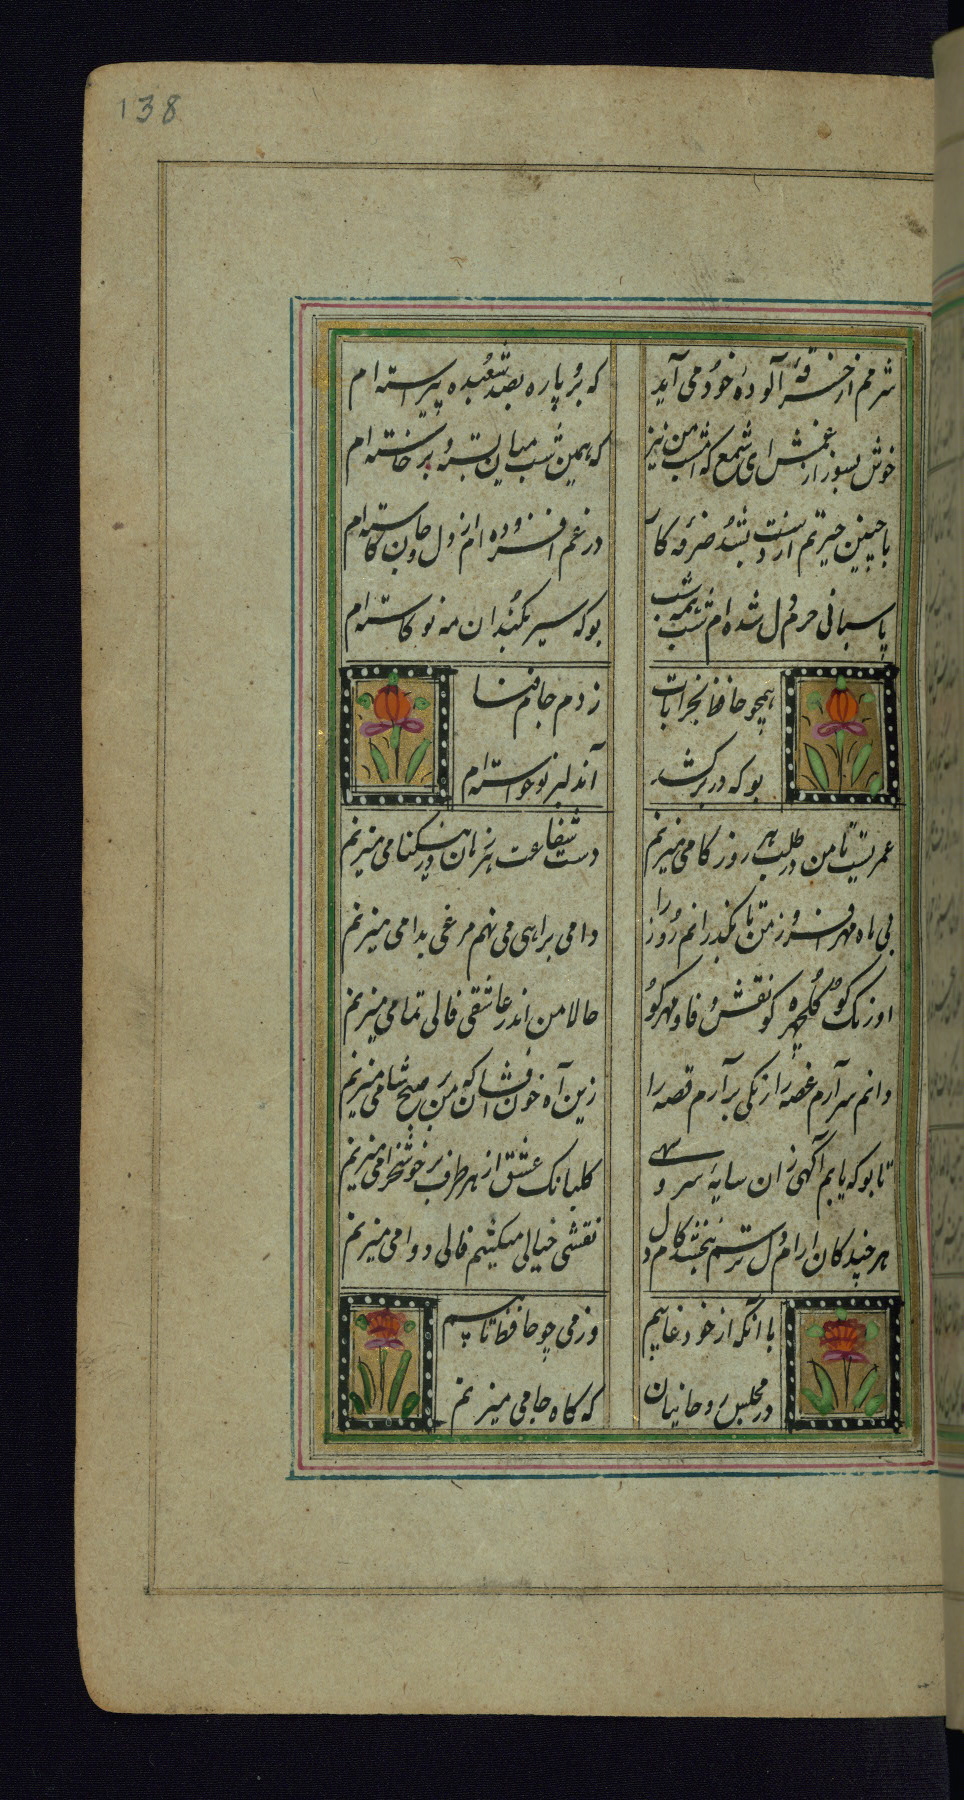 138
شرمم از خرقهٔ آلودهٔ خود می آید
که برو پاره بصد شعبده پیراسته ام
خوش بسوز از غمش ای شمع که امشب من نیز
که بهمین شب میان بسته و برخاسته ام
با چنین حیرتم از دست بشد صرفه کار
در غم افزوده ام از دل و جان کاسته ام
پاسبان حرم دل شده ام شب همه شب
بو که سیر بکند آن مه نو کاسته ام
همچو حافظ بخرابات
زدم جام فنا
بو که در بر کشد
آن دلبر نوخواسته ام
عمریست تا من در طلب هر روز کامی میزنم
دست شفاعت هر زمان در نیکنامی میزنم
بی ماه مهر افروز من تا بگذرانم روز را
دامی براهی می نهم مرغی بدامی میزنم
اورنک کو گلچهره کو نقش وفا و مهر کو
حالا من اندر عاشقی فالی تمامی میزنم
دانم سر آرم غصه را رنکی برآرم قصه را
زین آه خون افشان که من هر صبح و شامی میزنم
تا بو که یابم آگهی زان سایهٔ سرو سهی
کلبانک عشق از هر طرف بر خوشخرامی میزنم
هر چند کان ارام دل ترسم نبخشد کام دل
نقشی خیالی میکشم فالی دوامی میزنم
با آنکه از خود غایبم
وز می چو حافظ تایبم
در مجلس روحانیان
که کاه جامی میزنم